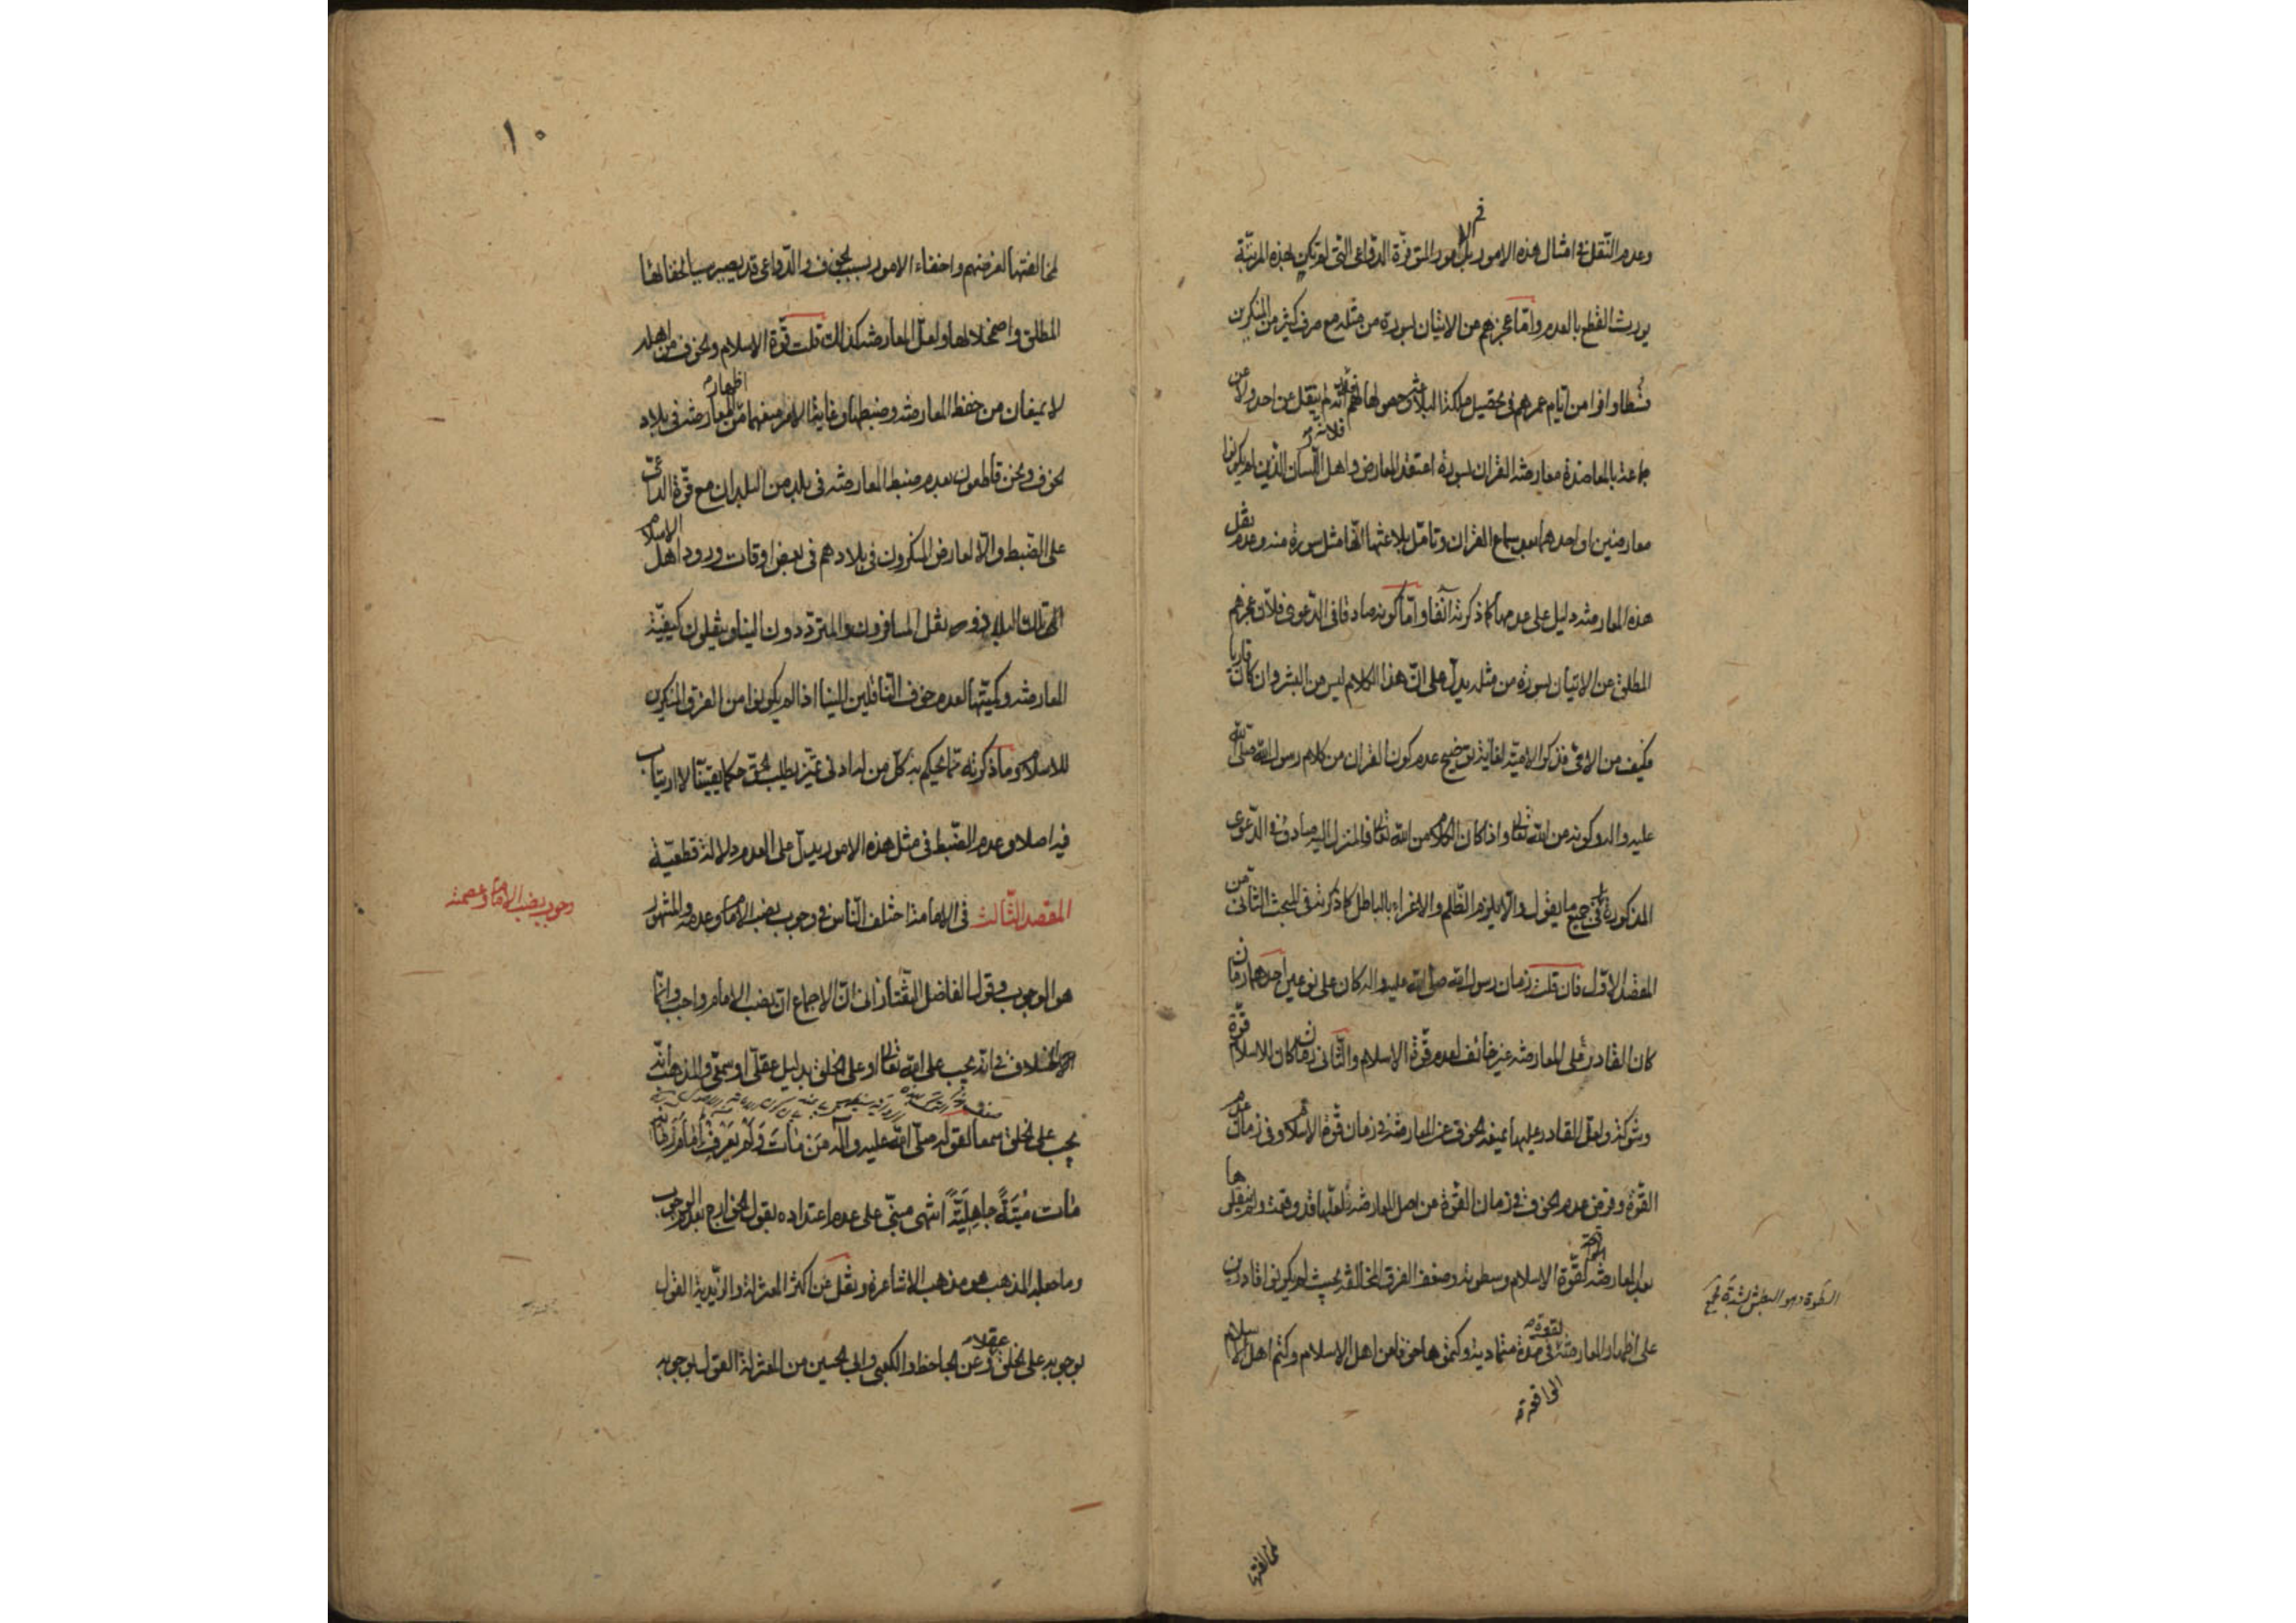 وعدم النقل في امثال هذه الامور بل الامور المتوفرة الدواعي التي لم تكن بهذه المرتبة
يورث القطع بالعدم واما عجزهم من الاتيان بسورة من مثله مع صرف كثير من المنكرين
شطرا وافرا من ايام عمرهم في تحصيل ملكة البلاغة وحصولها لهم فلانه لم ينقل من احد ولا عن
جماعة بالمعاضدة معارضة القران بسورة اعتقد المعارض واهل اللسان الذين لم يكونوا
فلانه
معارضين او احدهما بعد سماع القران وتامل بلاغتها انها مثل سورة منه وعدم نقل
هذه المعارضة دليل على عدمها كما ذكرته آنفا واما كونه صادقا في الدعوى فلان عجزهم
المطلق عن الاتيان بسورة من مثله يدل على ان هذا الكلام ليس من البشر وان كان قاريا
فكيف من الامي فذكر الامية لغاية توضيح عدم كون القران من كلام رسول الله صلى الله
عليه واله وكونه من الله تعالى واذا كان الكلام من الله تعالى فالمنزل اليه صادق في الدعوى
المذكورة بل في جميع ما يقول والا يلزم الظلم والاغراء بالباطل كما ذكرته في المبحث الثاني من
المقصد الاول فان قلت زمان رسول الله صلى الله عليه واله كان على نوعين احدهما زمان
كان القادر على المعارضة غير خائف لعدم قوة الاسلام والثاني زمان كان الاسلام قوة
وشوكة ولعل القادر عليها يمنعه الخوف عن المعارضة في زمان قوة الاسلام وفي زمان عدم
القوة وفرض عدم الخوف في زمان القوة من اصل المعارضة فلعلها قد وقعت ولم ينقلوها
بعد المعارضة لقوة الاسلام وسطوته وضعف الفرق المخالفة بحيث لم يكونوا قادرين
السطوة وهو البطش بشدة
على اظهار المعارضة في مدة متمادية وكتموها خوفا من اهل الاسلام وكتم اهل الاسلام
لقوته
لمخالفتها
١٠
لمخالفتها لغرضهم واخفاء الامور بسبب الخوف والدواعي قد يصير سببا لخفائها
المطلق واضمحلالها ولعل المعارضة كذلك قلت قوة الاسلام والخوف من اهله
لا يمنعان من حفظ المعارضة وضبطها وغاية الامر منعهما من اظهار المعارضة في بلاد
الخوف ونحن قاطعون بعدم ضبط المعارضة في بلد من البلدان مع قوة الدواعي
على الضبط والا لعارض المنكرون في بلادهم في بعض اوقات ورود اهل الاسلام
الى تلك البلاد ونقل المسافرون والمترددون الينا وينقلون كيفية
المعارضة وكميتها لعدم خوف الناقلين الينا اذا لم يكونوا من الفرق المنكرين
للاسلام وما ذكرته مما يحكم به كل من له ادنى تميز يطلب الحق حكما يقينيا لا ارتياب
فيه اصلا وعدم الضبط في مثل هذه الامور يدل على العدم دلالة قطعية
وجوب نصب الامام وعصمته
المقصد الثالث في الامامة اختلف الناس في وجوب نصب الامام وعدمه والمشهور
هو الوجوب وقول الفاضل التفتازاني ان الاجماع ان نصب الامام واجب وانما
الاختلاف في انه يجب على الله تعالى او على الخلق بدليل عقلي او سمعي والمذهب انه
يجب على الخلق سمعا لقوله صلى الله عليه وآله من مات ولم يعرف امام زمانه
مات ميتة جاهلية انتهى مبني على عدم اعتداده بقول الخوارج بعدم الوجوب
وما جعله المذهب هو مذهب الاشاعرة ونقل عن اكثر المعتزلة والزيدية القول
بوجوبه على الخلق عقلا وعن الجاحظ والكعبي وابي الحسين من المعتزلة القول بوجوبه